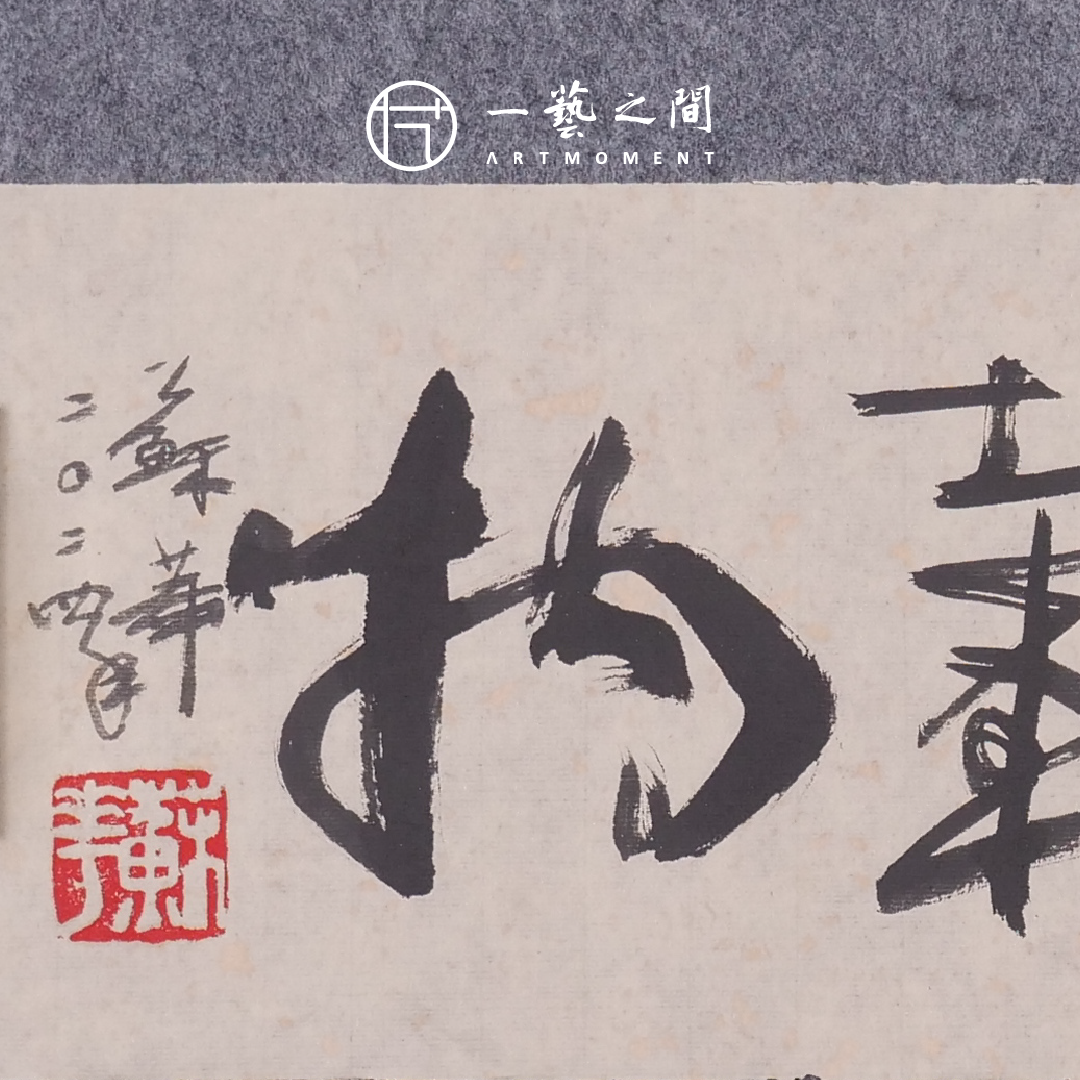 一藝之間
ARTMOMENT
載物
蘇華
二〇二四年